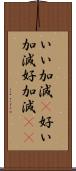 いい加減 好い
加減好加減